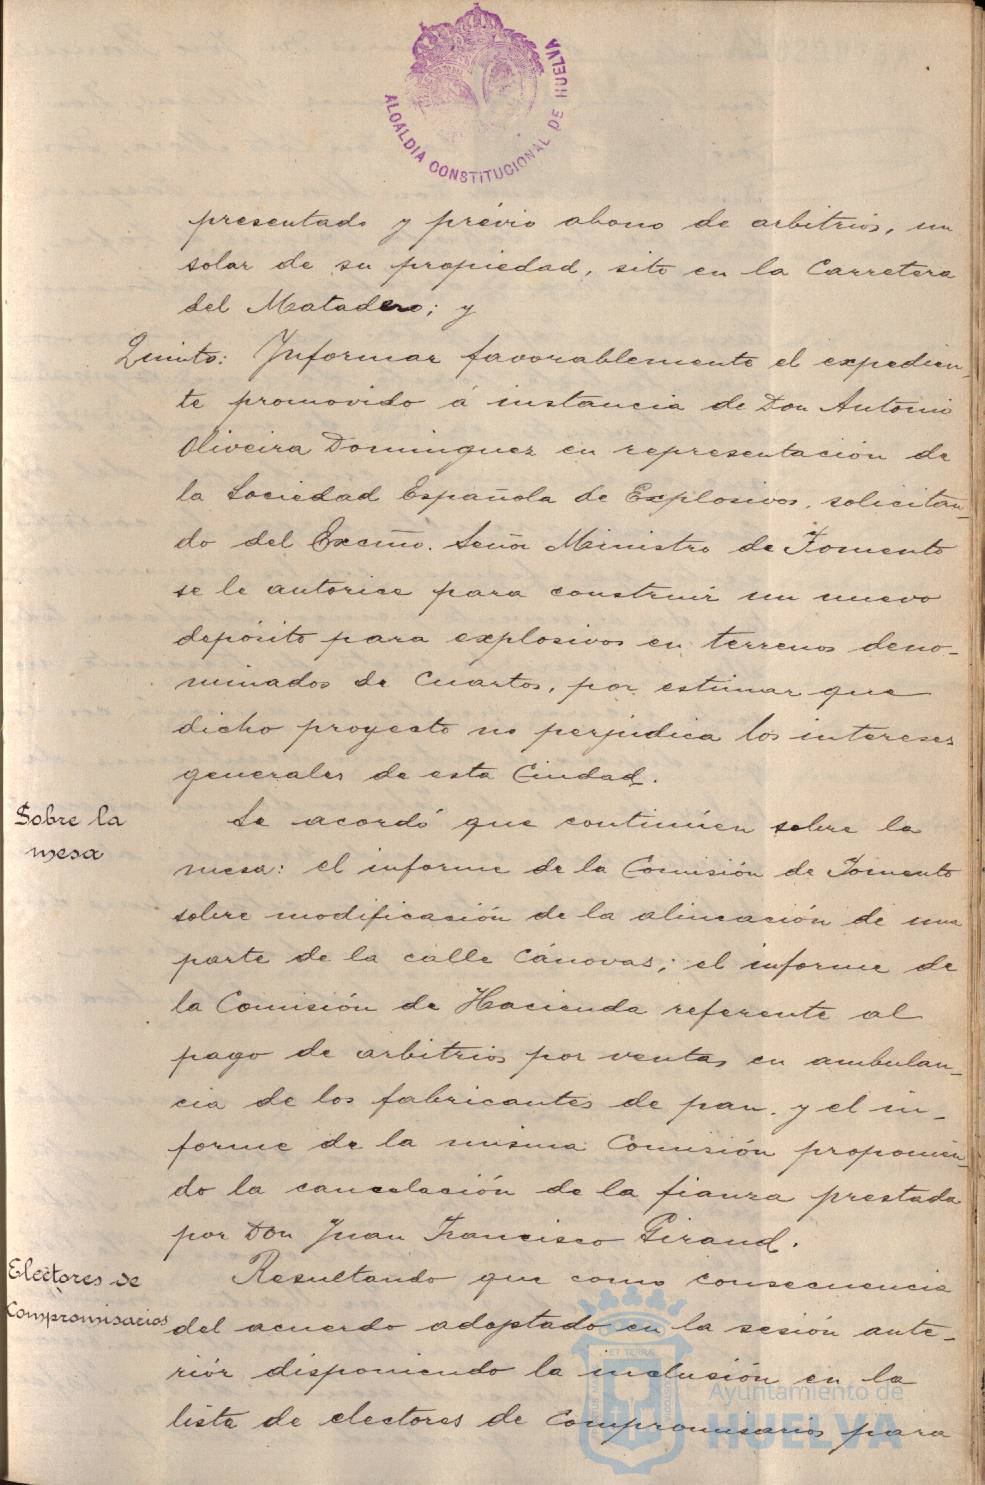 ALCALDIA CONSTITUCIONAL DE HUELVA
presentado y prévio abono de arbitrios, un
solar de su propiedad, sito en la Carretera
del Matadero; y
Quinto: Informar favorablemente el expedien-
te promovido á instancia de Don Antonio
Oliveira Dominguez en representación de
la Sociedad Española de Explosivos, solicitan-
do del Excmo. Señor Ministro de Fomento
se le autorice para construir un nuevo
depósito para explosivos en terrenos deno-
minados de Cuartos, por estimar que
dicho proyecto no perjudica los intereses
generales de esta Ciudad.
Sobre la
mesa
Se acordó que continúen sobre la
mesa: el informe de la Comisión de Fomento
sobre modificación de la alineación de una
parte de la calle Cánovas; el informe de
la Comisión de Hacienda referente al
pago de arbitrios por ventas en ambulan-
cia de los fabricantes de pan, y el in-
forme de la misma Comisión proponien-
do la cancelación de la fianza prestada
por Don Juan Francisco Giraud.
Electores de
Compromisarios
Resultando que como consecuencia
del acuerdo adoptado en la sesión ante-
riór disponiendo la inclusión en la
lista de electores de Compromisarios para
Ayuntamiento de
HUELVA